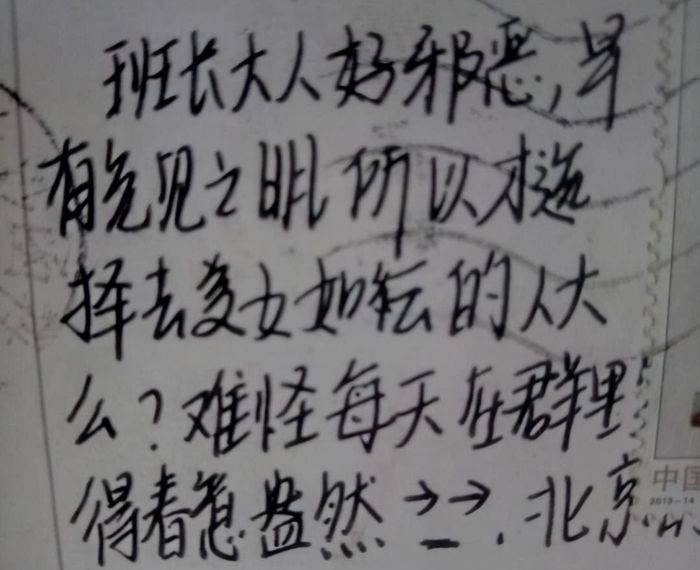 班长大人好邪恶,早
有先见之明所以才选
择去美女如耘的人大
么?难怪每天在群里
得春意盎然→_→.北京
中国
2013-14